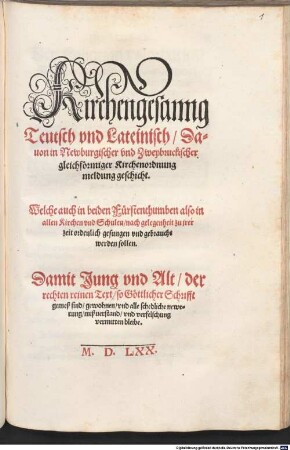 1
Kirchengesanng
Teutsch vnd Lateinisch / Da-
uon in Newburgischer vnd Zweybruckischer
gleichförmiger Kirchenordnung
meldung geschicht.
Welche auch in beiden Fürstenthumben also in
allen Kirchen vnd Schulen / nach gelegenheit zu jeder
zeit ordenlich gesungen vnd gebraucht
werden sollen.
Damit Jung vnd Alt / der
rechten reinen Text / so Göttlicher Schrifft
gemeß sind / gewohnen / vnd alle schedliche newe-
rung / mißuerstand / vnd verfelschung
vermitten bleibe.
M. D. LXX.